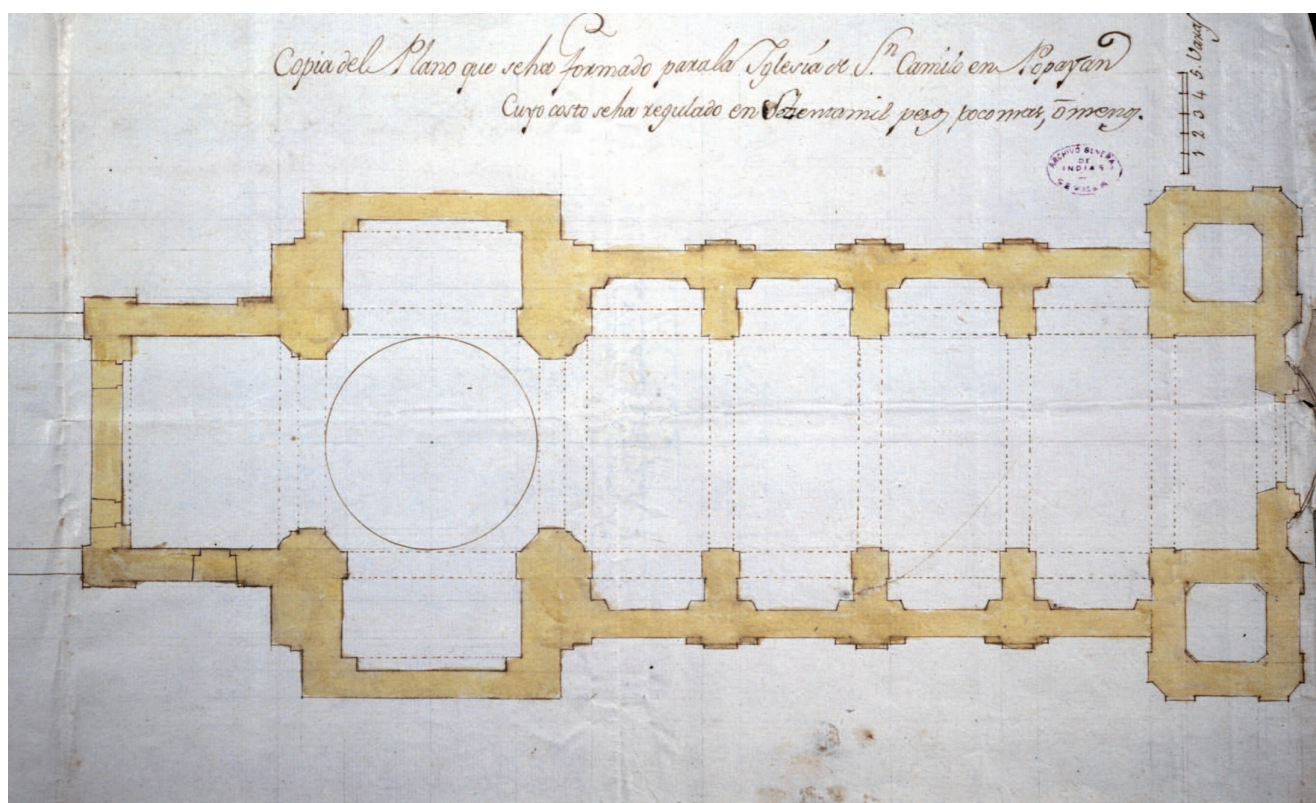 Copia del Plano que se ha formado para la Yglesia de S.ⁿ Camilo en Popayán
Cuyo costo se ha regulado en Setentamil pesos poco mas, ō menos.
1 2 3 4 5. Varas
ARCHIVO GENERAL
DE
INDIAS
SEVILLA